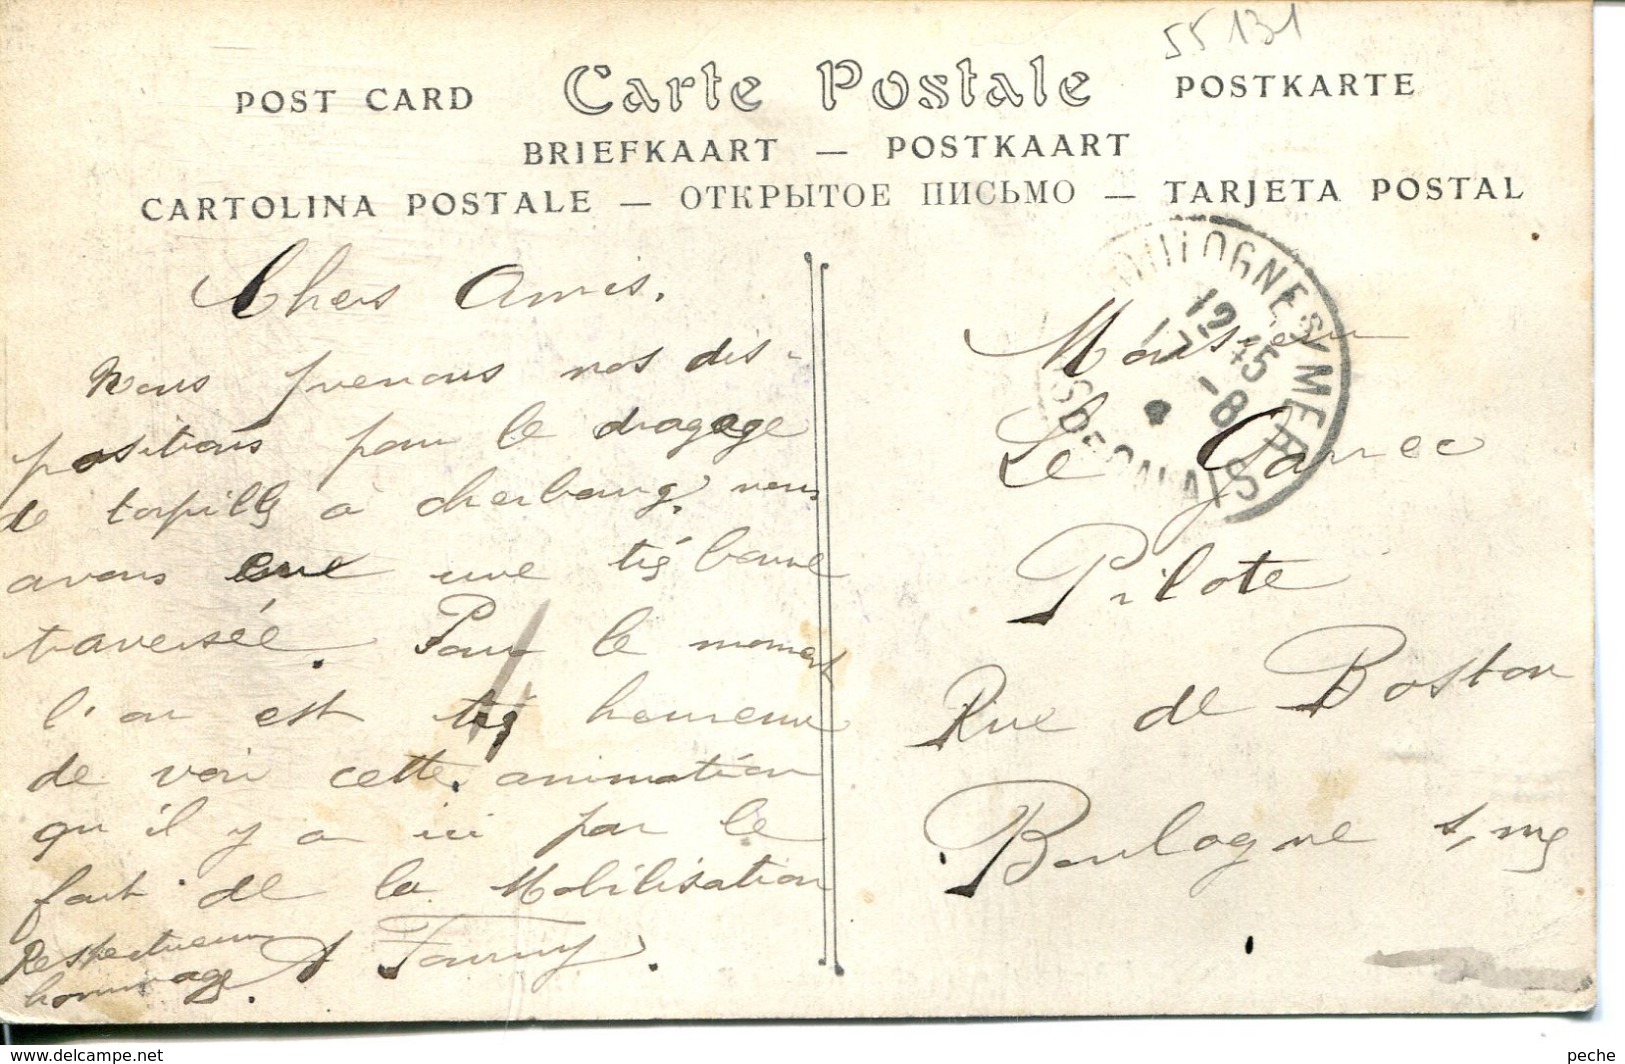 55131
POST CARD Carte Postale POSTKARTE
BRIEFKAART — POSTKAART
CARTOLINA POSTALE — ОТКРЫТОЕ ПИСЬМО — TARJETA POSTAL
Chers Amis.
Nous prenons nos dis-
positions pour le dragage
de torpills à cherbourg, nous
avons eue une très bonne
traversée. Pour le moment
l'on est très heureux
de voir cette animation
qu'il y a ici par le
fait de la Mobilisation
Respectueux
hommage. Fanny.
BOULOGNE S/ MER
12 45
-8
PAS DE CALAIS
Monsieur
Le Garrec
Pilote
Rue de Boston
Boulogne s, m
peche
www.delcampe.net